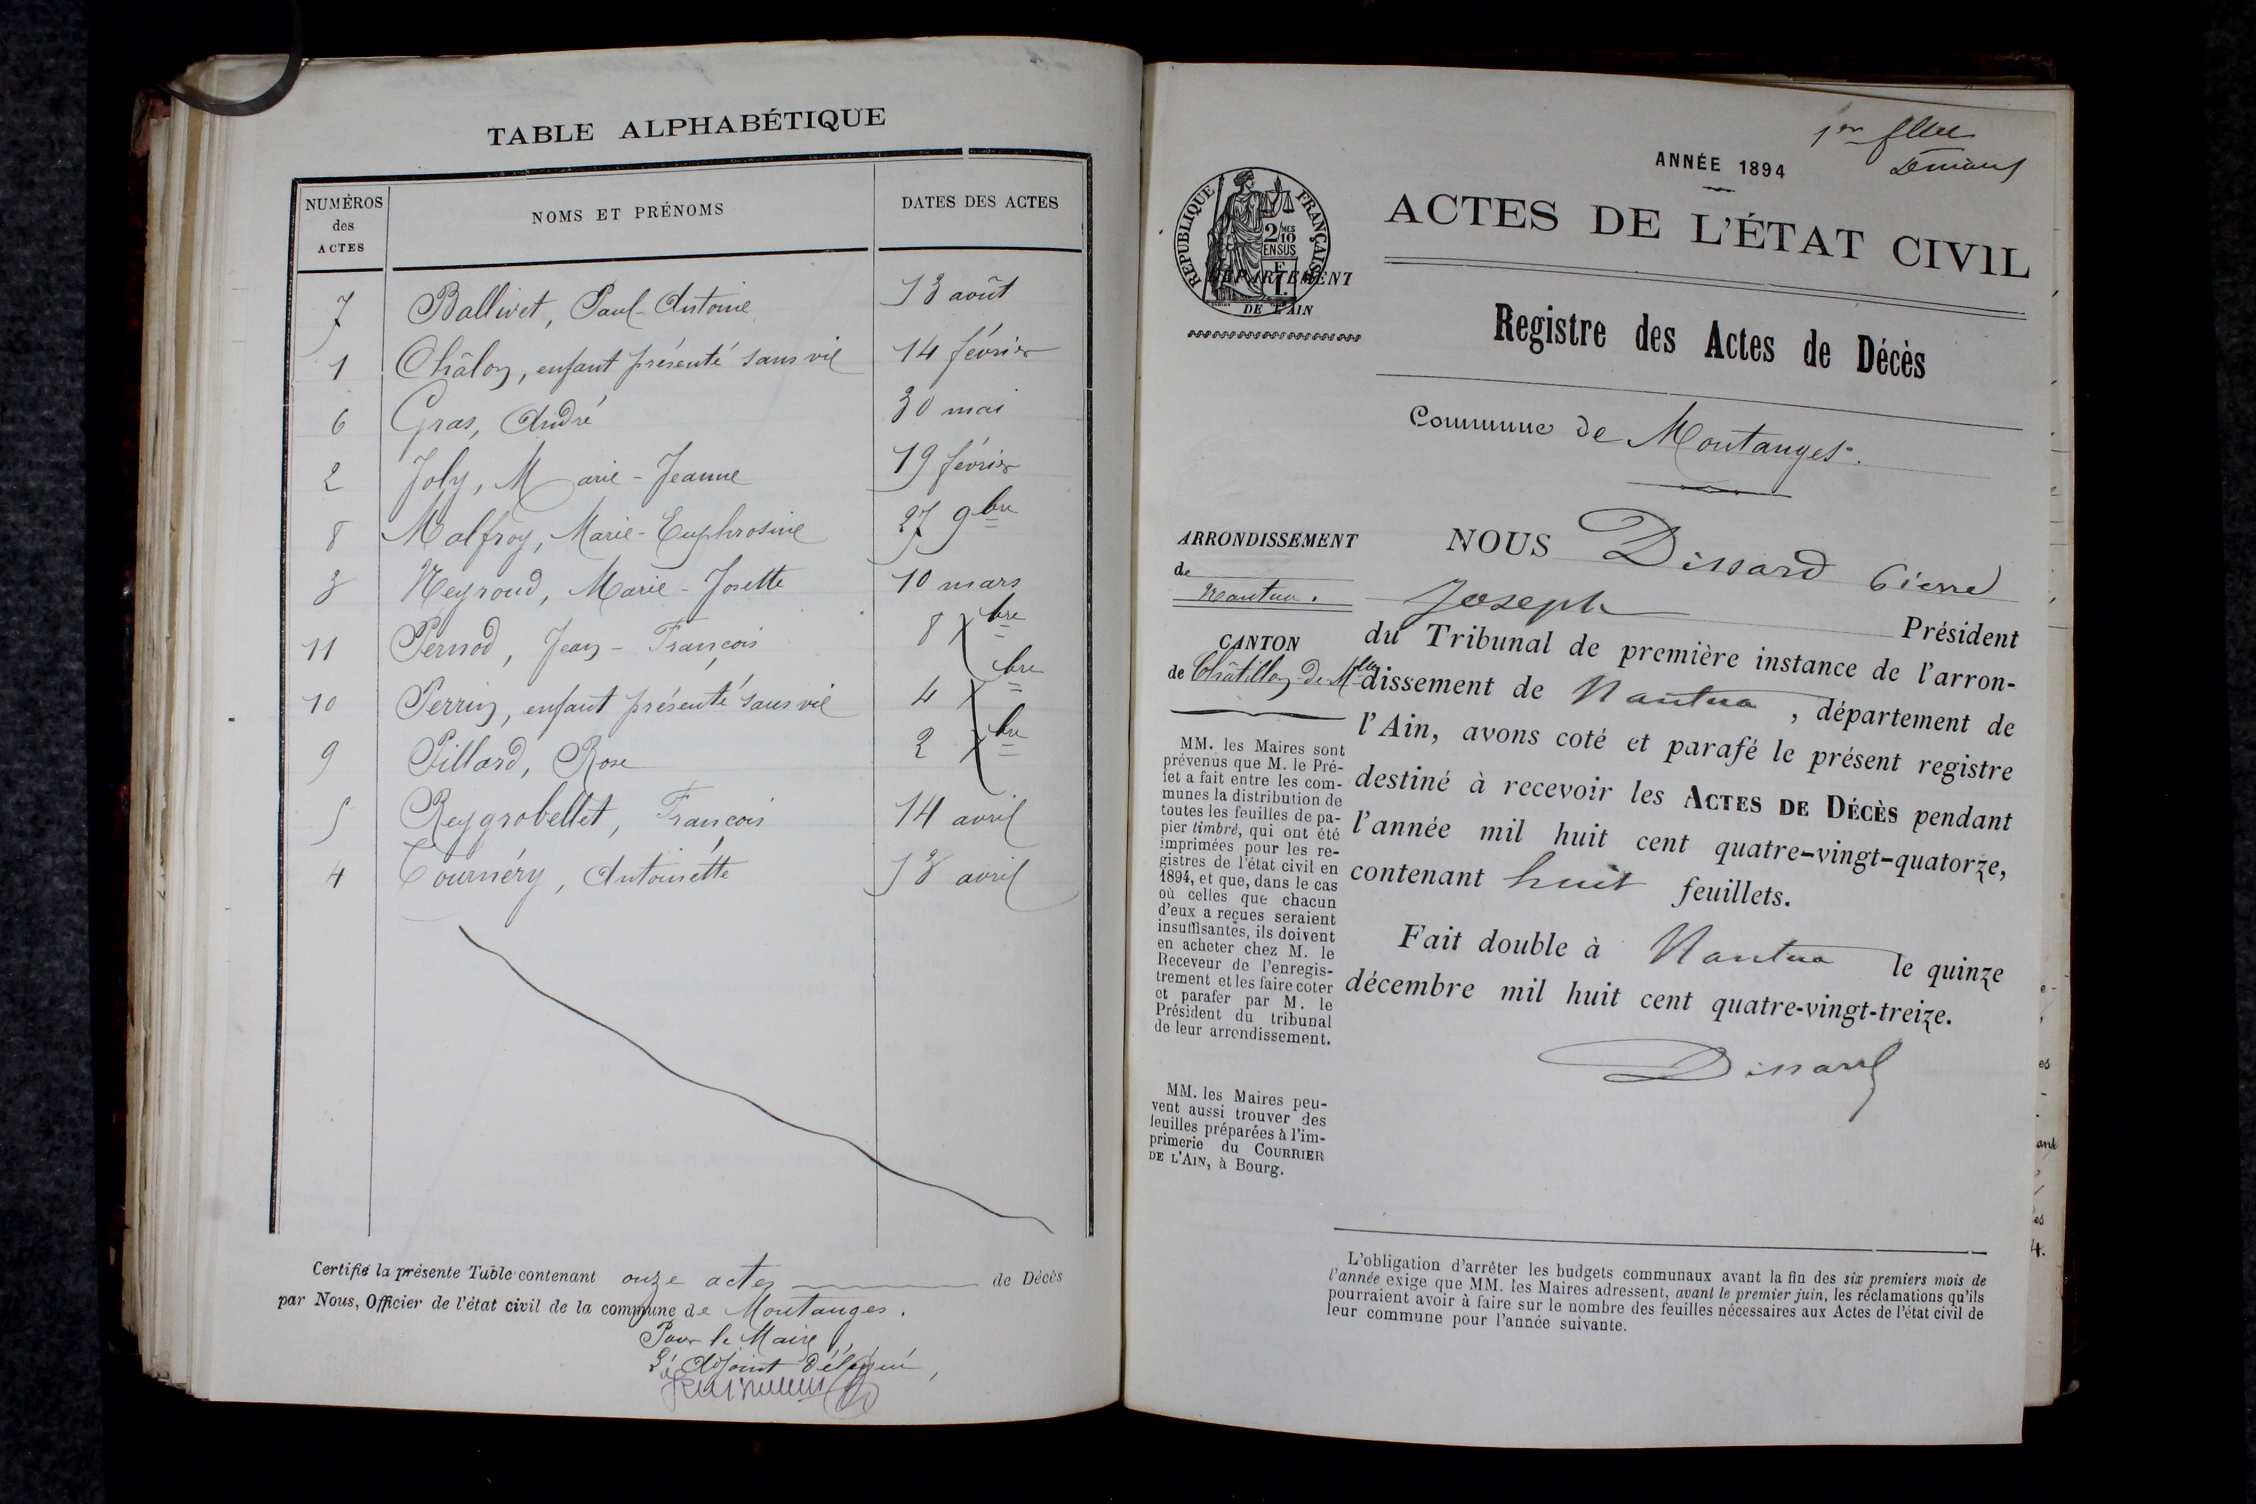 TABLE ALPHABÉTIQUE
NUMÉROS des ACTES
NOMS ET PRÉNOMS
DATES DES ACTES
7 Ballivet, Paul-Antoine 13 août
1 Châlon, enfant présenté sans vie 14 février
6 Gras, André 30 mai
2 Joly, Marie-Jeanne 19 février
8 Malfroy, Marie-Euphrosine 27 9bre
3 Neyroud, Marie-Josette 10 mars
11 Pernod, Jean-François 8 Xbre
10 Perrin, enfant présenté sans vie 4 Xbre
9 Pillard, Rose 2 Xbre
5 Reygrobellet, François 14 avril
4 Tournéry, Antoinette 13 avril
Certifié la présente Table contenant onze actes de Décès
par Nous, Officier de l'état civil de la commune de Montanges.
Pour le Maire,
L'Adjoint délégué,
1er
ANNÉE 1894
RÉPUBLIQUE FRANÇAISE
2/10MES
EN SUS
DÉPARTEMENT
DE L'AIN
ACTES DE L'ÉTAT CIVIL
Registre des Actes de Décès
Commune de Montanges.
ARRONDISSEMENT
de
Nantua.
CANTON
de Châtillon-de-Mlle
MM. les Maires sont
prévenus que M. le Pré-
fet a fait entre les com-
munes la distribution de
toutes les feuilles de pa-
pier timbré, qui ont été
imprimées pour les re-
gistres de l'état civil en
1894, et que, dans le cas
où celles que chacun
d'eux a reçues seraient
insuffisantes, ils doivent
en acheter chez M. le
Receveur de l'enregis-
trement et les faire coter
et parafer par M. le
Président du tribunal
de leur arrondissement.
MM. les Maires peu-
vent aussi trouver des
feuilles préparées à l'im-
primerie du COURRIER
DE L'AIN, à Bourg.
NOUS Dissard Pierre
Joseph Président
du Tribunal de première instance de l'arron-
dissement de Nantua, département de
l'Ain, avons coté et parafé le présent registre
destiné à recevoir les ACTES DE DÉCÈS pendant
l'année mil huit cent quatre-vingt-quatorze,
contenant huit feuillets.
Fait double à Nantua le quinze
décembre mil huit cent quatre-vingt-treize.
Dissard
L'obligation d'arrêter les budgets communaux avant la fin des six premiers mois de
l'année exige que MM. les Maires adressent, avant le premier juin, les réclamations qu'ils
pourraient avoir à faire sur le nombre des feuilles nécessaires aux Actes de l'état civil de
leur commune pour l'année suivante.